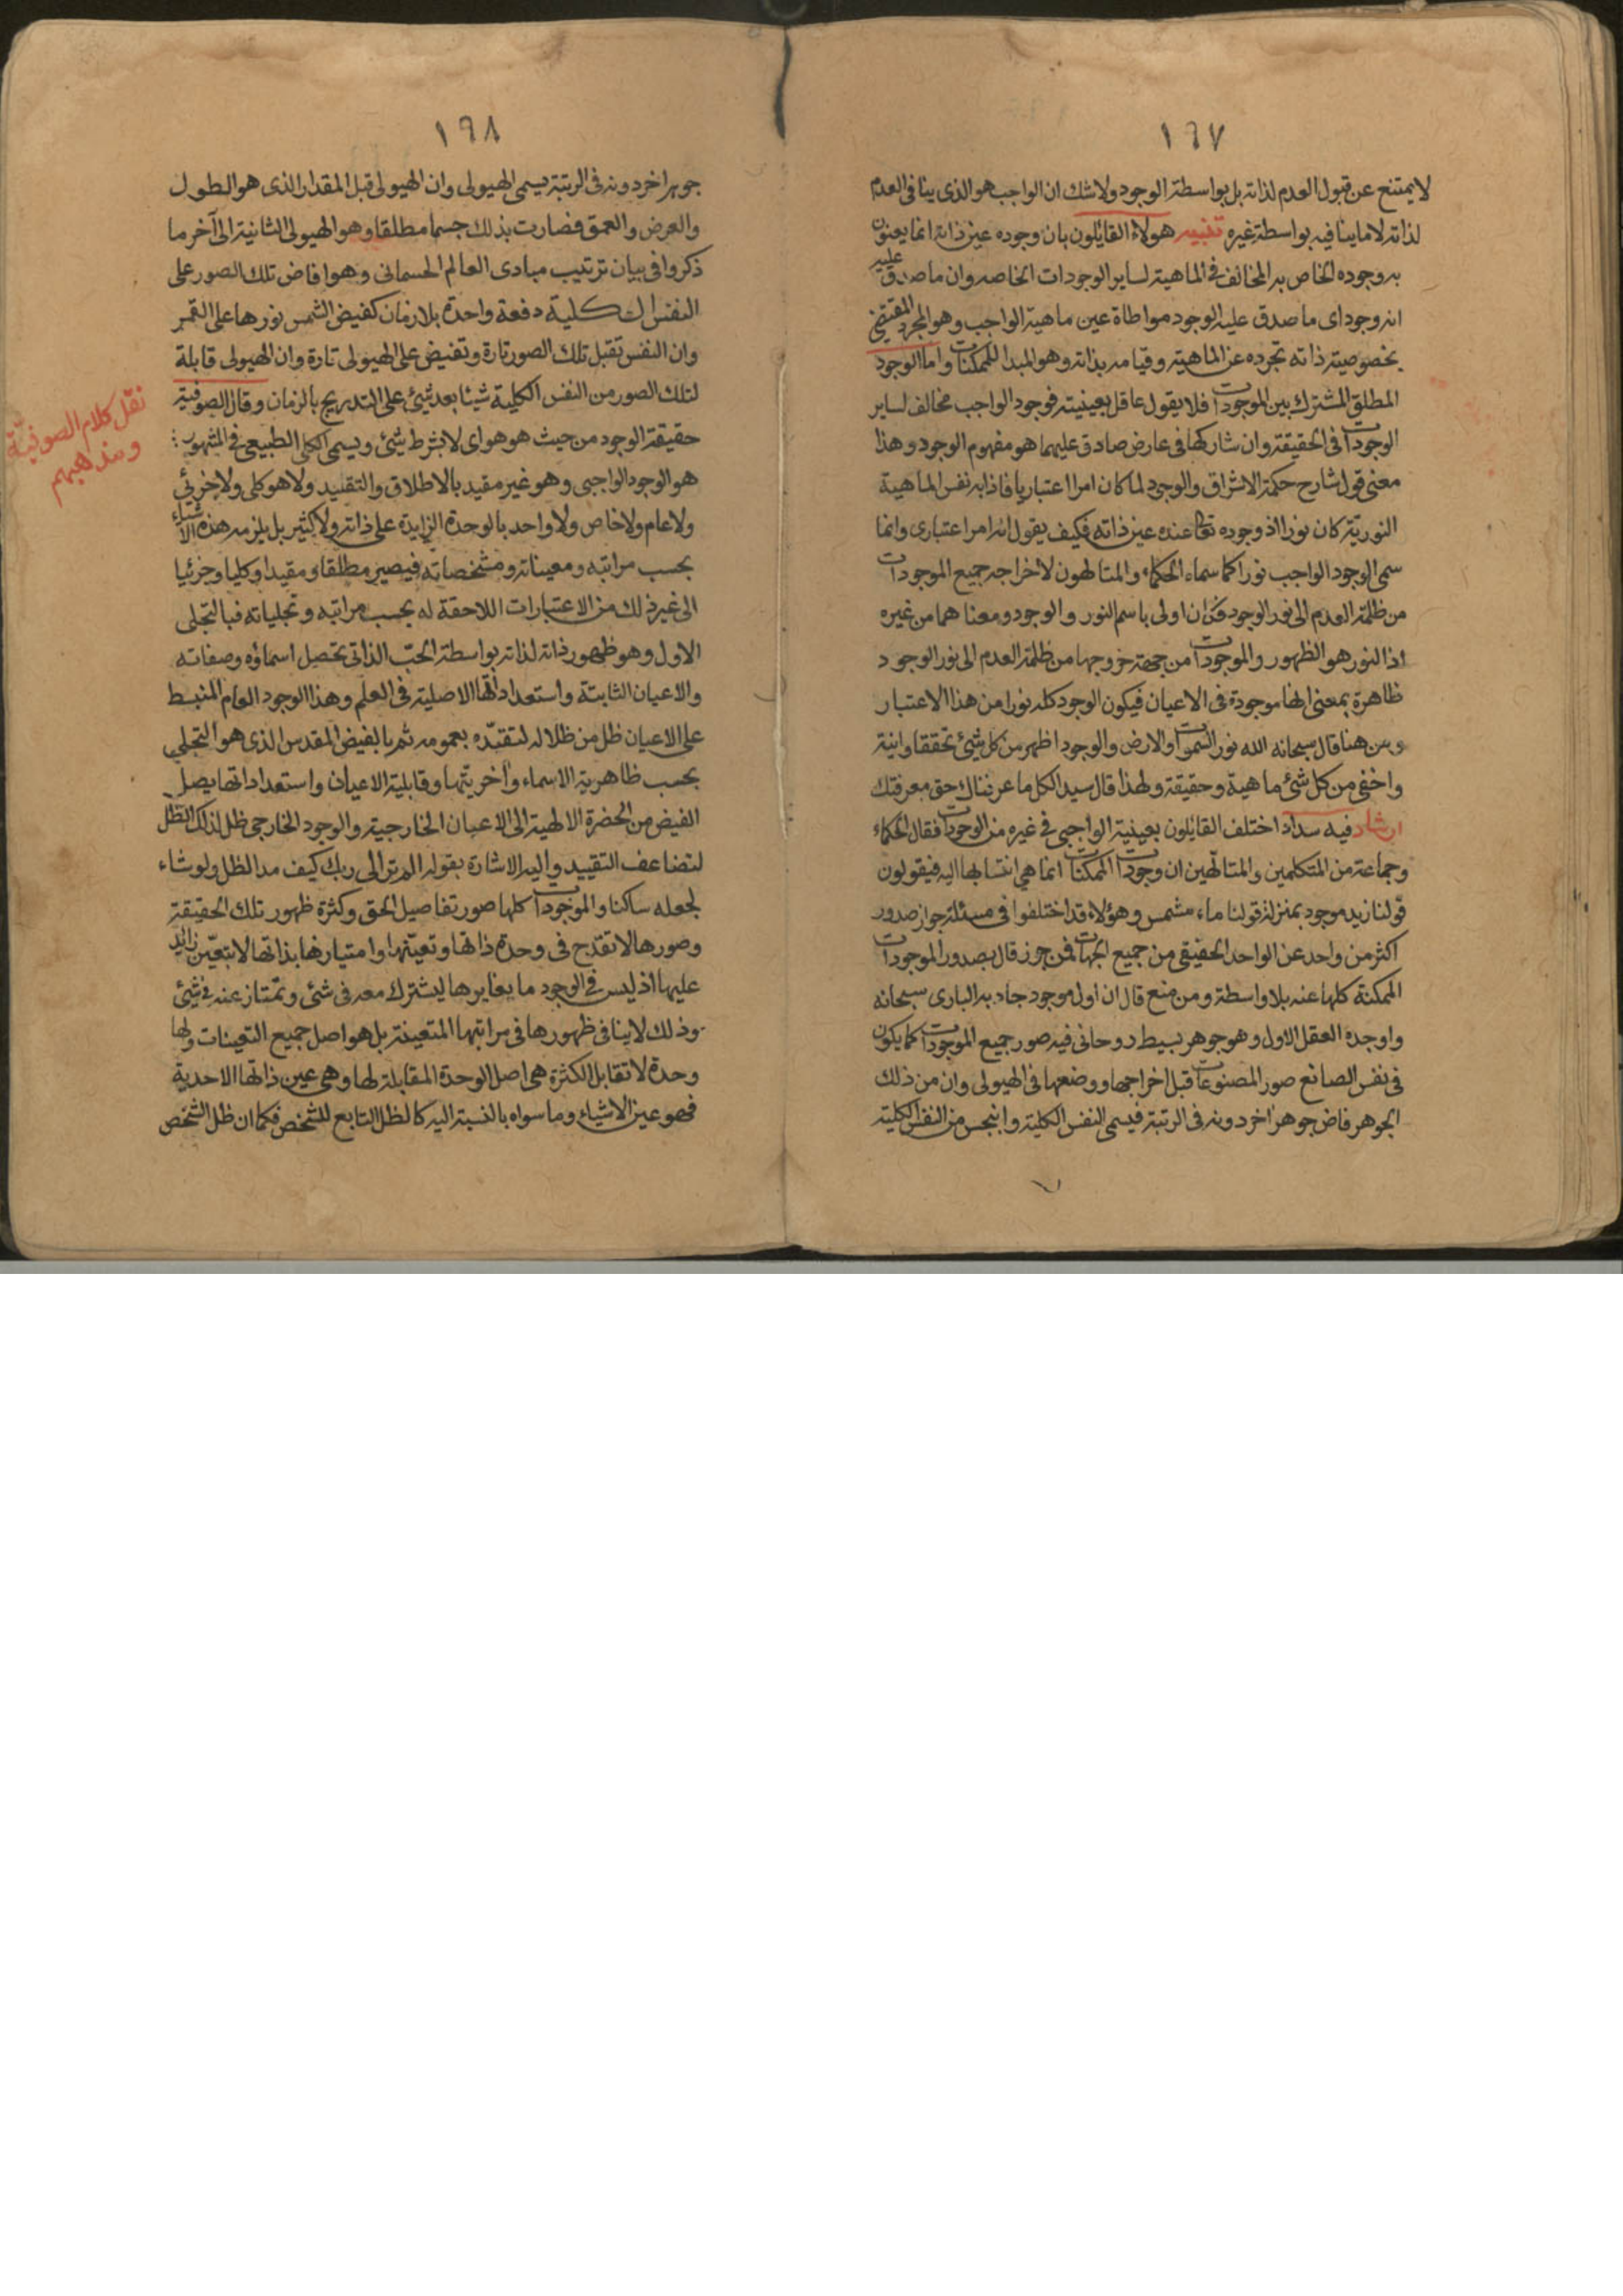 ١٦٧
لا يمتنع عن قبول العدم لذاته بل بواسطة الوجود ولا شك ان الواجب هو الذى ينافى العدم
لذاته لا ما ينافيه بواسطة غيره تنبيه هولاء القايلون بان وجوده عين ذاته انما يعنون
به وجوده الخاص به المخالف فى الماهية لساير الوجودات الخاصه وان ما صدق عليه
انه وجود اى ما صدق عليه الوجود مواطاة عين ماهية الواجب وهو المجرد المقتضى
بخصوصية ذاته تجرده عن الماهية وقيامه بذاته وهو المبدا للممكنات واما الوجود
المطلق المشترك بين الموجودات فلا يقول عاقل بعينيته فوجود الواجب مخالف لساير
الوجودات فى الحقيقة وان شاركها فى عارض صادق عليهما هو مفهوم الوجود وهذا
معنى قول شارح حكمة الاشراق والوجود لما كان امرا اعتباريا فاذا به نفس الماهية
النورية كان نورا اذ وجوده تعا عنده عين ذاته فكيف يقول انه امر اعتبارى وانما
سمى الوجود الواجب نورا كما سماه الحكماء والمتالهون لاخراجه جميع الموجودات
من ظلمة العدم الى نور الوجود فكان اولى باسم النور والوجود ومعناهما من غيره
اذ النور هو الظهور والموجودات من جهة خروجها من ظلمة العدم الى نور الوجود
ظاهرة بمعنى انها موجودة فى الاعيان فيكون الوجود كله نورا من هذا الاعتبار
ومن هنا قال سبحانه الله نور السموات والارض والوجود اظهر من كل شئ تحققا وانية
واخفى من كل شئ ماهية وحقيقة ولهذا قال سيد الكل ما عرفناك حق معرفتك
ارشاد فيه سداد اختلف القايلون بعينية الواجبى فى غيره من الوجودات فقال الحكماء
وجماعة من المتكلمين والمتالهين ان وجودات الممكنات انما هى انتسابها اليه فيقولون
قولنا زيد موجود بمنزلة قولنا ماء مشمس وهؤلاء قد اختلفوا فى مسئلة جواز صدور
اكثر من واحد عن الواحد الحقيقى من جميع الجهات فمن جوز قال بصدور الموجودات
الممكنة كلها عنه بلا واسطة ومن منع قال ان اول موجود جاد به البارى سبحانه
واوجده العقل الاول وهو جوهر بسيط روحانى فيه صور جميع الموجودات كما يكون
فى نفس الصانع صور المصنوعات قبل اخراجها ووضعها فى الهيولى وان من ذلك
الجوهر فاض جوهر اخر دونه فى الرتبة فيسمى النفس الكلية وانبجس من النفس الكلية
١٦٨
جوهر اخر دونه فى الرتبة يسمى الهيولى وان الهيولى قبل المقدار الذى هو الطول
والعرض والعمق فصارت بذلك جسما مطلقا وهو الهيولى الثانية الى آخر ما
ذكروا فى بيان ترتيب مبادى العالم الجسمانى وهو افاض تلك الصور على
النفس الكلية دفعة واحدة بلا زمان كفيض الشمس نورها على القمر
وان النفس تقبل تلك الصور تارة وتفيض على الهيولى تارة وان الهيولى قابلة
لتلك الصور من النفس الكلية شيئا بعد شيئ على التدريج بالزمان وقال الصوفية
حقيقة الوجود من حيث هو هو اى لا بشرط شئ ويسمى الكلى الطبيعى فى المشهور
هو الوجود الواجبى وهو غير مقيد بالاطلاق والتقييد ولا هو كلى ولا جزئي
ولا عام ولا خاص ولا واحد بالوحدة الزايدة على ذاته ولا كثير بل يلزمه هذه الاشياء
بحسب مراتبه ومعيناته ومشخصاته فيصير مطلقا ومقيدا وكليا وجزئيا
الى غير ذلك من الاعتبارات اللاحقة له بحسب مراتبه وتجلياته فبالتجلى
الاول وهو ظهور ذاته لذاته بواسطة الحب الذاتى تحصل اسماؤه وصفاته
والاعيان الثابتة واستعداداتها الاصلية فى العلم وهذا الوجود العام المنبسط
على الاعيان ظل من ظلاله لتقيده بعمومه ثم بالفيض المقدس الذى هو التجلى
بحسب ظاهرية الاسماء وآخريتها وقابلية الاعيان واستعداداتها يصل
الفيض من الحضرة الالهية الى الاعيان الخارجية والوجود الخارجى ظل لذلك الظل
لتضاعف التقييد واليه الاشارة بقوله الم تر الى ربك كيف مد الظل ولو شاء
لجعله ساكنا والموجودات كلها صور تفاصيل الحق وكثرة ظهور تلك الحقيقة
وصورها لا تقدح فى وحدة ذاتها وتعينها وامتيازها بذاتها لا بتعين زائد
عليها اذ ليس فى الوجود ما يغايرها ليشترك معه فى شئ وتمتاز عنه فى شئ
وذلك لا ينافى ظهورها فى مراتبها المتعينة بل هو اصل جميع التعينات ولها
وحدة لا تقابل الكثرة هى اصل الوحدة المقابلة لها وهى عين ذاتها الاحدية
فهو عين الاشياء وما سواه بالنسبة اليه كالظل التابع للشخص فكما ان ظل الشخص
نقل كلام الصوفية
ومذهبهم